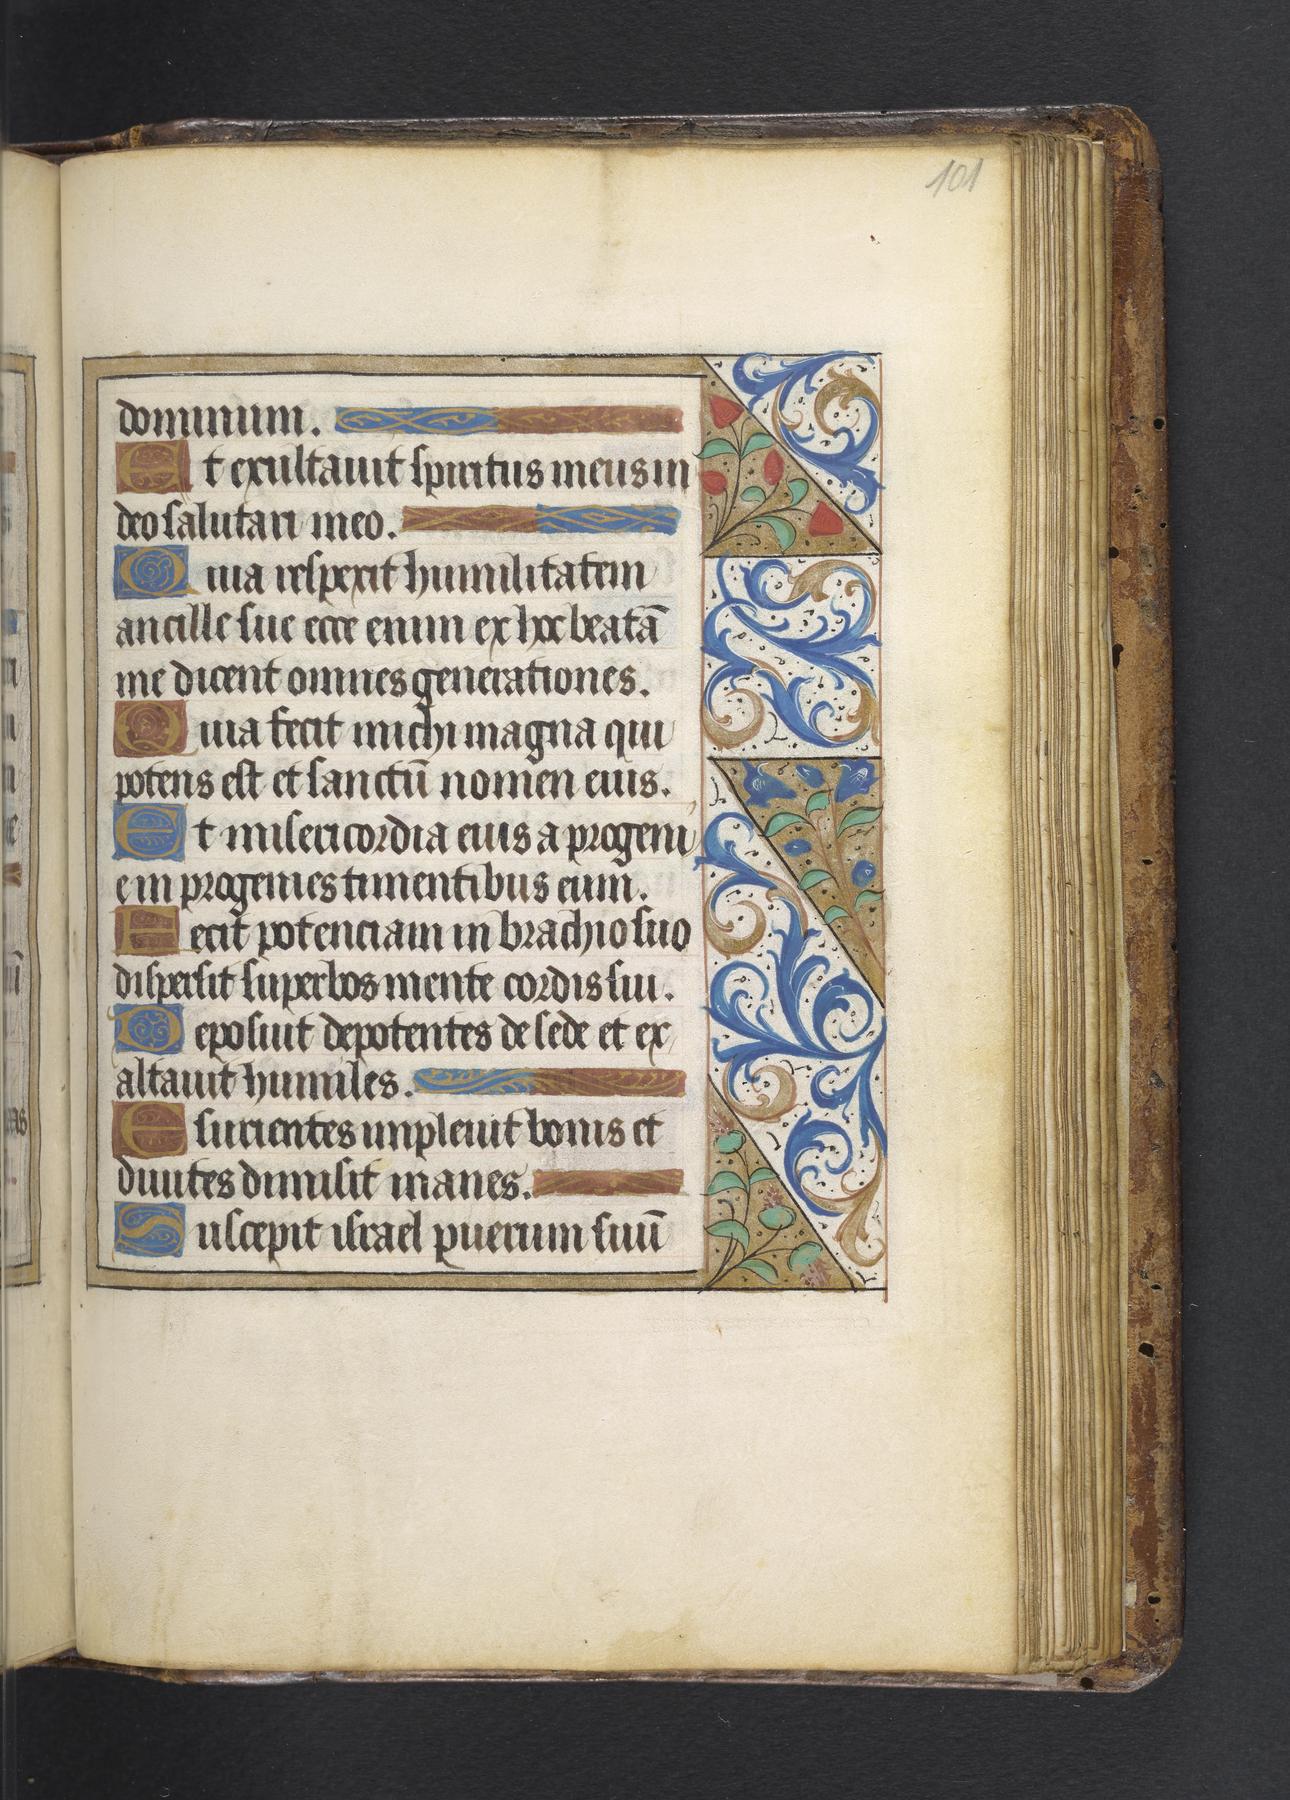 101
dominum.
Et exultauit spiritus meus in
deo salutari meo.
Quia respexit humilitatem
ancille sue ecce enim ex hoc beatā
me dicent omnes generationes.
Quia fecit michi magna qui
potens est et sanctū nomen eius.
Et misericordia eius a progeni
e in progenies timentibus eum.
Fecit potenciam in brachio suo
dispersit superbos mente cordis sui.
Deposuit depotentes de sede et ex
altauit humiles.
Esurientes impleuit bonis et
diuites dimisit inanes.
Suscepit israel puerum suū